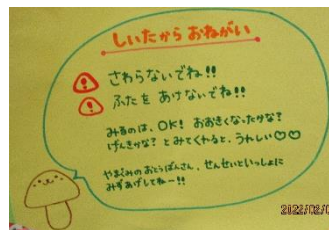 しいたから おねがい
さわらないでね!!
ふたを あけないでね!!
みるのは、OK! おおきくなったかな?
げんきかな? とみてくれると、うれしい♡♡
やまぐみのおとうばんさん、せんせいといっしょに
みずあげしてねー!!